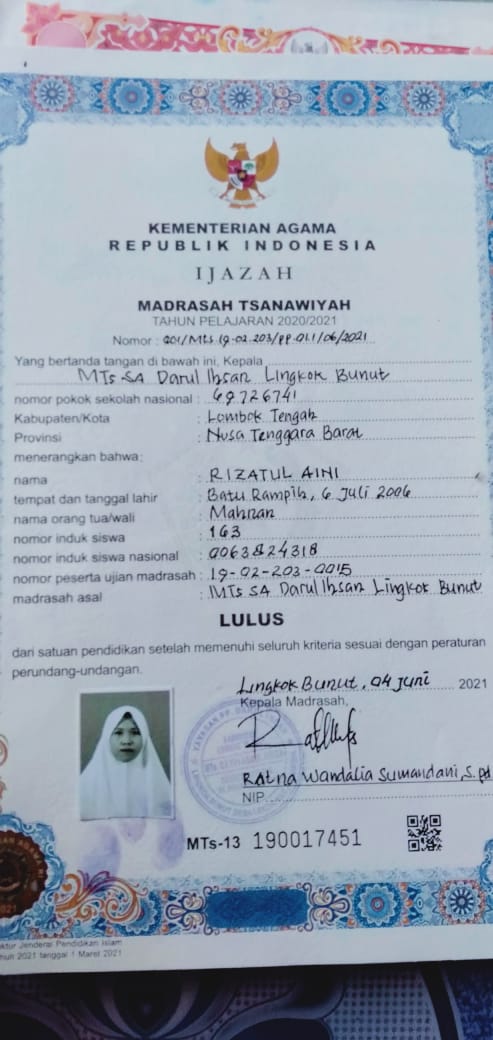 KEMENTERIAN AGAMA
REPUBLIK INDONESIA
IJAZAH
MADRASAH TSANAWIYAH
TAHUN PELAJARAN 2020/2021
Nomor : 001/MTs.19-02.203/PP.01.1/06/2021
Yang bertanda tangan di bawah ini, Kepala
MTs SA Darul Ihsan Lingkok Bunut
nomor pokok sekolah nasional : 69726741
Kabupaten/Kota : Lombok Tengah
Provinsi : Nusa Tenggara Barat
menerangkan bahwa:
nama : RIZATUL AINI
tempat dan tanggal lahir : Batu Rampih, 6 Juli 2006
nama orang tua/wali : Mahnan
nomor induk siswa : 163
nomor induk siswa nasional : 0063824318
nomor peserta ujian madrasah : 19-02-203-0015
madrasah asal : MTs SA Darul Ihsan Lingkok Bunut
LULUS
dari satuan pendidikan setelah memenuhi seluruh kriteria sesuai dengan peraturan
perundang-undangan.
Lingkok Bunut, 04 Juni 2021
Kepala Madrasah,
Ratna Wandalia Sumandani, S.Pd
NIP.
MTs-13 190017451
2021
Jenderal Pendidikan Islam
2021 tanggal 1 Maret 2021